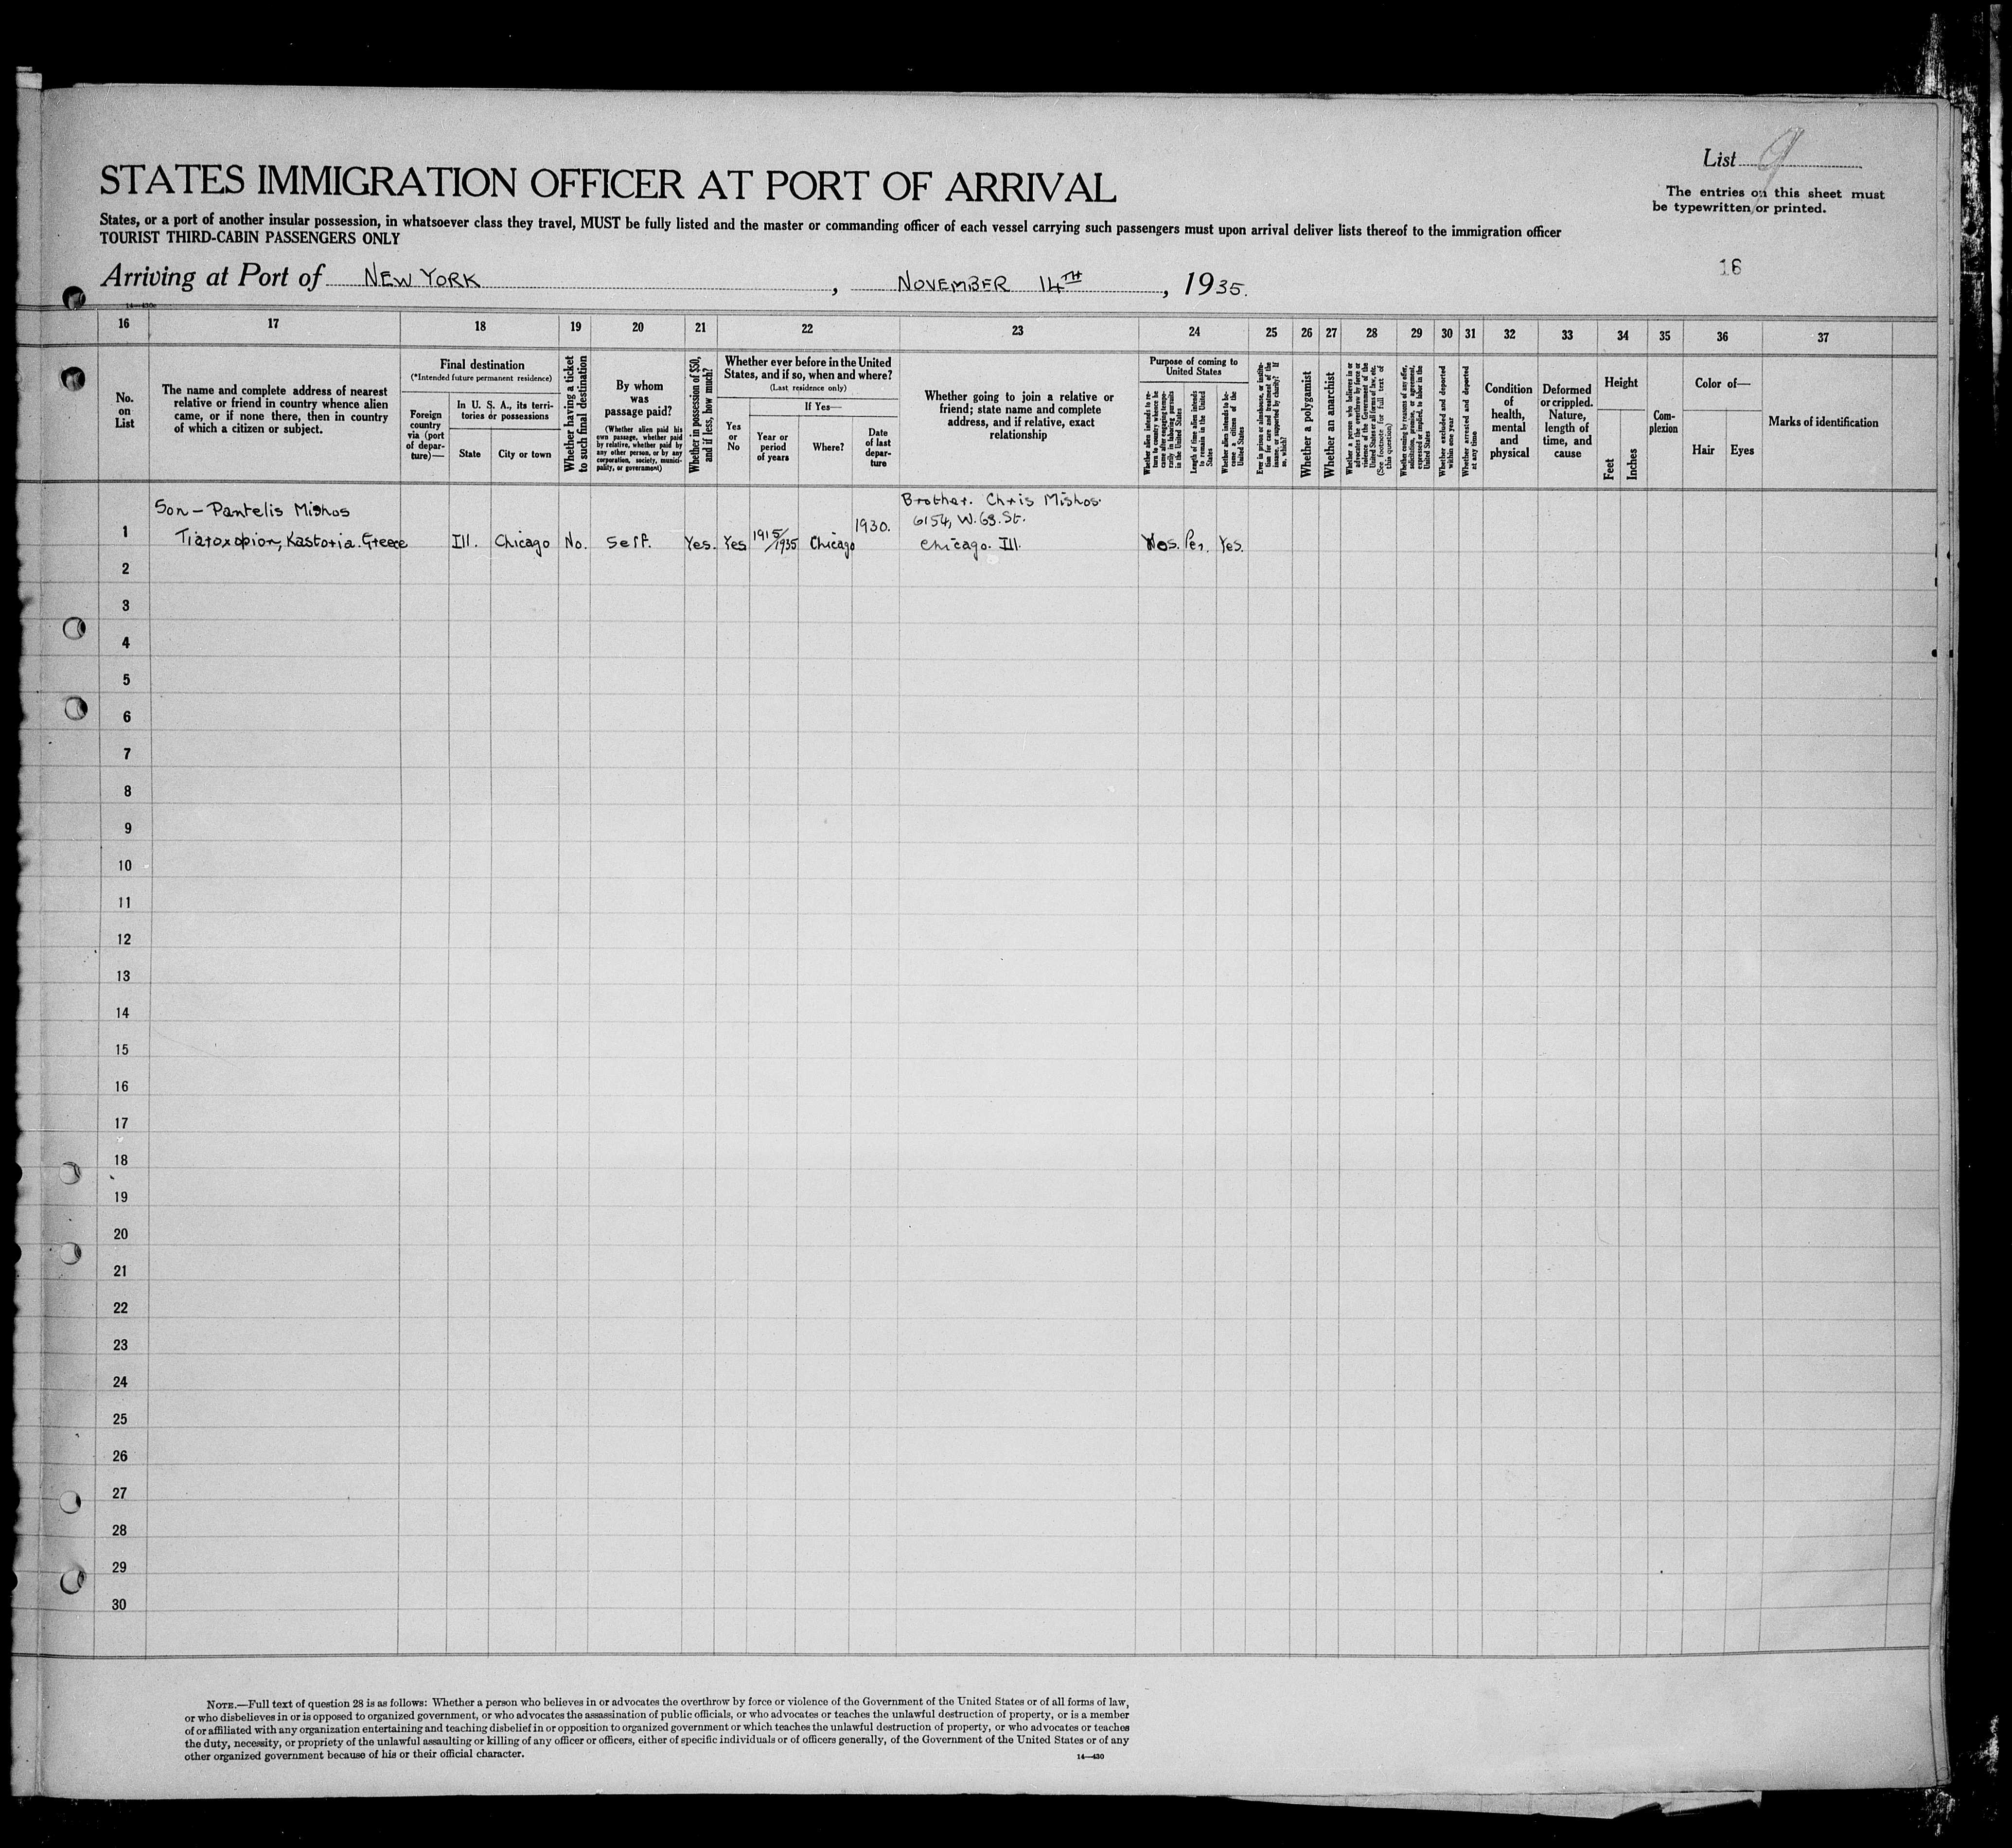 List 9
STATES IMMIGRATION OFFICER AT PORT OF ARRIVAL
The entries on this sheet must
be typewritten or printed.
States, or a port of another insular possession, in whatsoever class they travel, MUST be fully listed and the master or commanding officer of each vessel carrying such passengers must upon arrival deliver lists thereof to the immigration officer
TOURIST THIRD-CABIN PASSENGERS ONLY
16
Arriving at Port of NEW YORK, NOVEMBER 14TH, 1935.
14—430
16 17 18 19 20 21 22 23 24 25 26 27 28 29 30 31 32 33 34 35 36 37
No.
on
List
The name and complete address of nearest
relative or friend in country whence alien
came, or if none there, then in country
of which a citizen or subject.
Final destination
(*Intended future permanent residence)
Foreign
country
via (port
of depar-
ture)—
In U. S. A., its terri-
tories or possessions
State
City or town
Whether having a ticket
to such final destination
By whom
was
passage paid?
(Whether alien paid his
own passage, whether paid
by relative, whether paid by
any other person, or by any
corporation, society, munici-
pality, or government)
Whether in possession of $50,
and if less, how much?
Whether ever before in the United
States, and if so, when and where?
(Last residence only)
Yes
or
No
If Yes—
Year or
period
of years
Where?
Date
of last
depar-
ture
Whether going to join a relative or
friend; state name and complete
address, and if relative, exact
relationship
Purpose of coming to
United States
Whether alien intends to re-
turn to country whence he
came after engaging tempo-
rarily in laboring pursuits
in the United States
Length of time alien intends
to remain in the United
States
Whether alien intends to be-
come a citizen of the
United States
Ever in prison or almshouse, or institu-
tion for care and treatment of the
insane, or supported by charity? If
so, which?
Whether a polygamist
Whether an anarchist
Whether a person who believes in or
advocates the overthrow by force or
violence of the Government of the
United States or all forms of law, etc.
(See footnote for full text of
this question)
Whether coming by reasons of any offer,
solicitation, promise, or agreement,
expressed or implied, to labor in the
United States
Whether excluded and deported
within one year
Whether arrested and deported
at any time
Condition
of
health,
mental
and
physical
Deformed
or crippled.
Nature,
length of
time, and
cause
Height
Feet
Inches
Com-
plexion
Color of—
Hair
Eyes
Marks of identification
Son - Pantelis Mishos
Brother. Chris Mishos.
6154, W. 63. St.
1 Kastoria. Greece Ill. Chicago No. Self. Yes. Yes 1915/1935 Chicago 1930. Chicago. Ill. Per. Yes.
2
3
4
5
6
7
8
9
10
11
12
13
14
15
16
17
18
19
20
21
22
23
24
25
26
27
28
29
30
NOTE.—Full text of question 28 is as follows: Whether a person who believes in or advocates the overthrow by force or violence of the Government of the United States or of all forms of law,
or who disbelieves in or is opposed to organized government, or who advocates the assassination of public officials, or who advocates or teaches the unlawful destruction of property, or is a member
of or affiliated with any organization entertaining and teaching disbelief in or opposition to organized government or which teaches the unlawful destruction of property, or who advocates or teaches
the duty, necessity, or propriety of the unlawful assaulting or killing of any officer or officers, either of specific individuals or of officers generally, of the Government of the United States or of any
other organized government because of his or their official character.
14—430